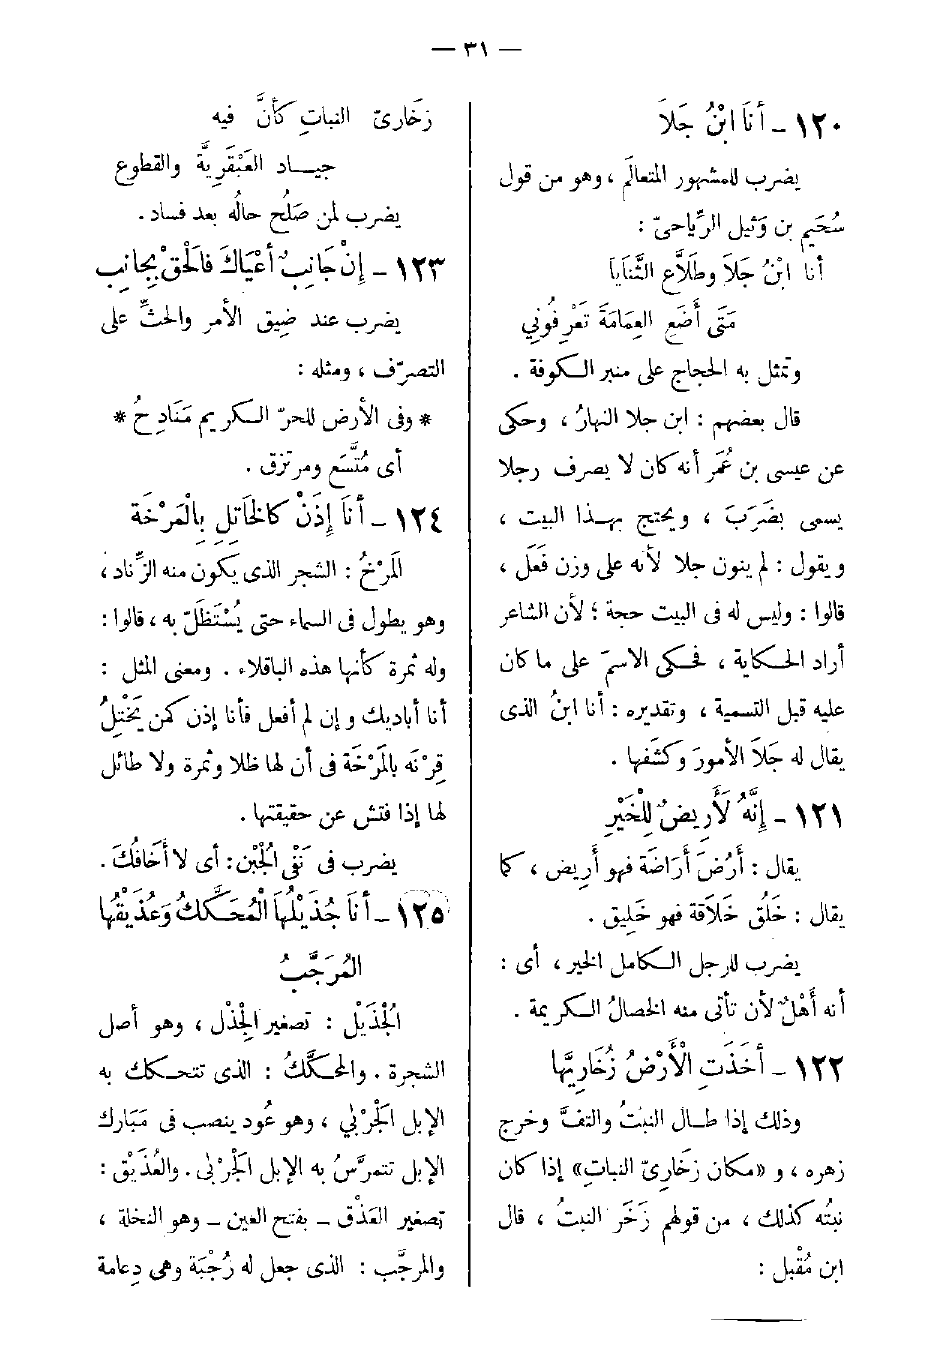 — ٣١ —
١٢٠ - أَنَا ابْنُ جَلَا
يضرب للمشهور المتعالَم ، وهو من قول
سُحَيم بن وَثيل الرِّياحىّ :
أنا ابْنُ جَلَا وطَلَّاع الثَّنَايَا
مَتَى أَضَعِ العِمَامَةَ تَعْرِفُونِي
وتمثل به الحجاج على منبر الكوفة .
قال بعضهم : ابن جلا النهارُ ، وحكى
عن عيسى بن عُمَر أنه كان لا يصرف رجلا
يسمى بضَرَبَ ، ويحتج بهذا البيت ،
ويقول : لم ينون جلا لأنه على وزن فَعَل ،
قالوا : وليس له فى البيت حجة ؛ لأن الشاعر
أراد الحكاية ، فحكى الاسمَ على ما كان
عليه قبل التسمية ، وتقديره : أنا ابنُ الذى
يقال له جَلَا الأمورَ وكَشَفها .
١٢١ - إِنَّهُ لَأَرِيضٌ لِلْخَيْرِ
يقال : أَرُضَ أَرَاضَة فهو أَرِيض ، كما
يقال : خَلُق خَلَاقة فهو خَلِيق .
يضرب للرجل الكامل الخير ، أى :
أنه أَهْلٌ لأن تأتى منه الخصالُ الكريمة .
١٢٢ - أَخَذَتِ الْأَرْضُ زُخَارِيَّها
وذلك إذا طال النبتُ والتفَّ وخرج
زهره ، و «مكان زَخَارِىّ النبات» إذا كان
نبتُه كذلك ، من قولهم زَخَر النبتُ ، قال
ابن مُقْبل :
زَخَارىّ النباتِ كأنَّ فيه
جياد العَبْقَرِيَّة والقطوع
يضرب لمن صَلُح حالُه بعد فساد .
١٢٣ - إِنْ جَانِبٌ أَعْيَاكَ فَالْحَقْ بِجَانِبِ
يضرب عند ضِيق الأمر والحثِّ على
التصرّف ، ومثله :
* وفى الأرض للحرّ الكريم مَنَادِحُ *
أى مُتَّسَع ومرتزق .
١٢٤ - أَنَا إِذَنْ كَالخَاتِلِ بِالْمَرْخَةِ
المَرْخُ : الشجر الذى يكون منه الزِّناد ،
وهو يطول فى السماء حتى يُسْتَظَلّ به ، قالوا :
وله ثمرة كأنها هذه الباقلاء . ومعنى المثل :
أنا أباديك وإن لم أفعل فأنا إذن كمن يَخْتِلُ
قِرْنَه بالمَرْخَة فى أن لها ظلا وثمرة ولا طائل
لها إذا فتش عن حقيقتها .
يضرب فى نَفْى الجُبْن : أى لا أَخَافُكَ .
١٢٥ - أَنَا جُذَيْلُهَا الْمُحَكَّكُ وَعُذَيْقُهَا
المُرَجَّبُ
الجُذَيْل : تصغير الجِذْل ، وهو أصل
الشجرة . والمحكَّكُ : الذى تتحكك به
الإبل الجَرْبى ، وهو عُود ينصب فى مَبَارك
الإبل تتمرَّسُ به الإبل الجَرْبى . والعُذَيْق :
تصغير العَذْق – بفتح العين – وهو النخلة ،
والمرجَّب : الذى جعل له رُجْبَة وهى دِعامة